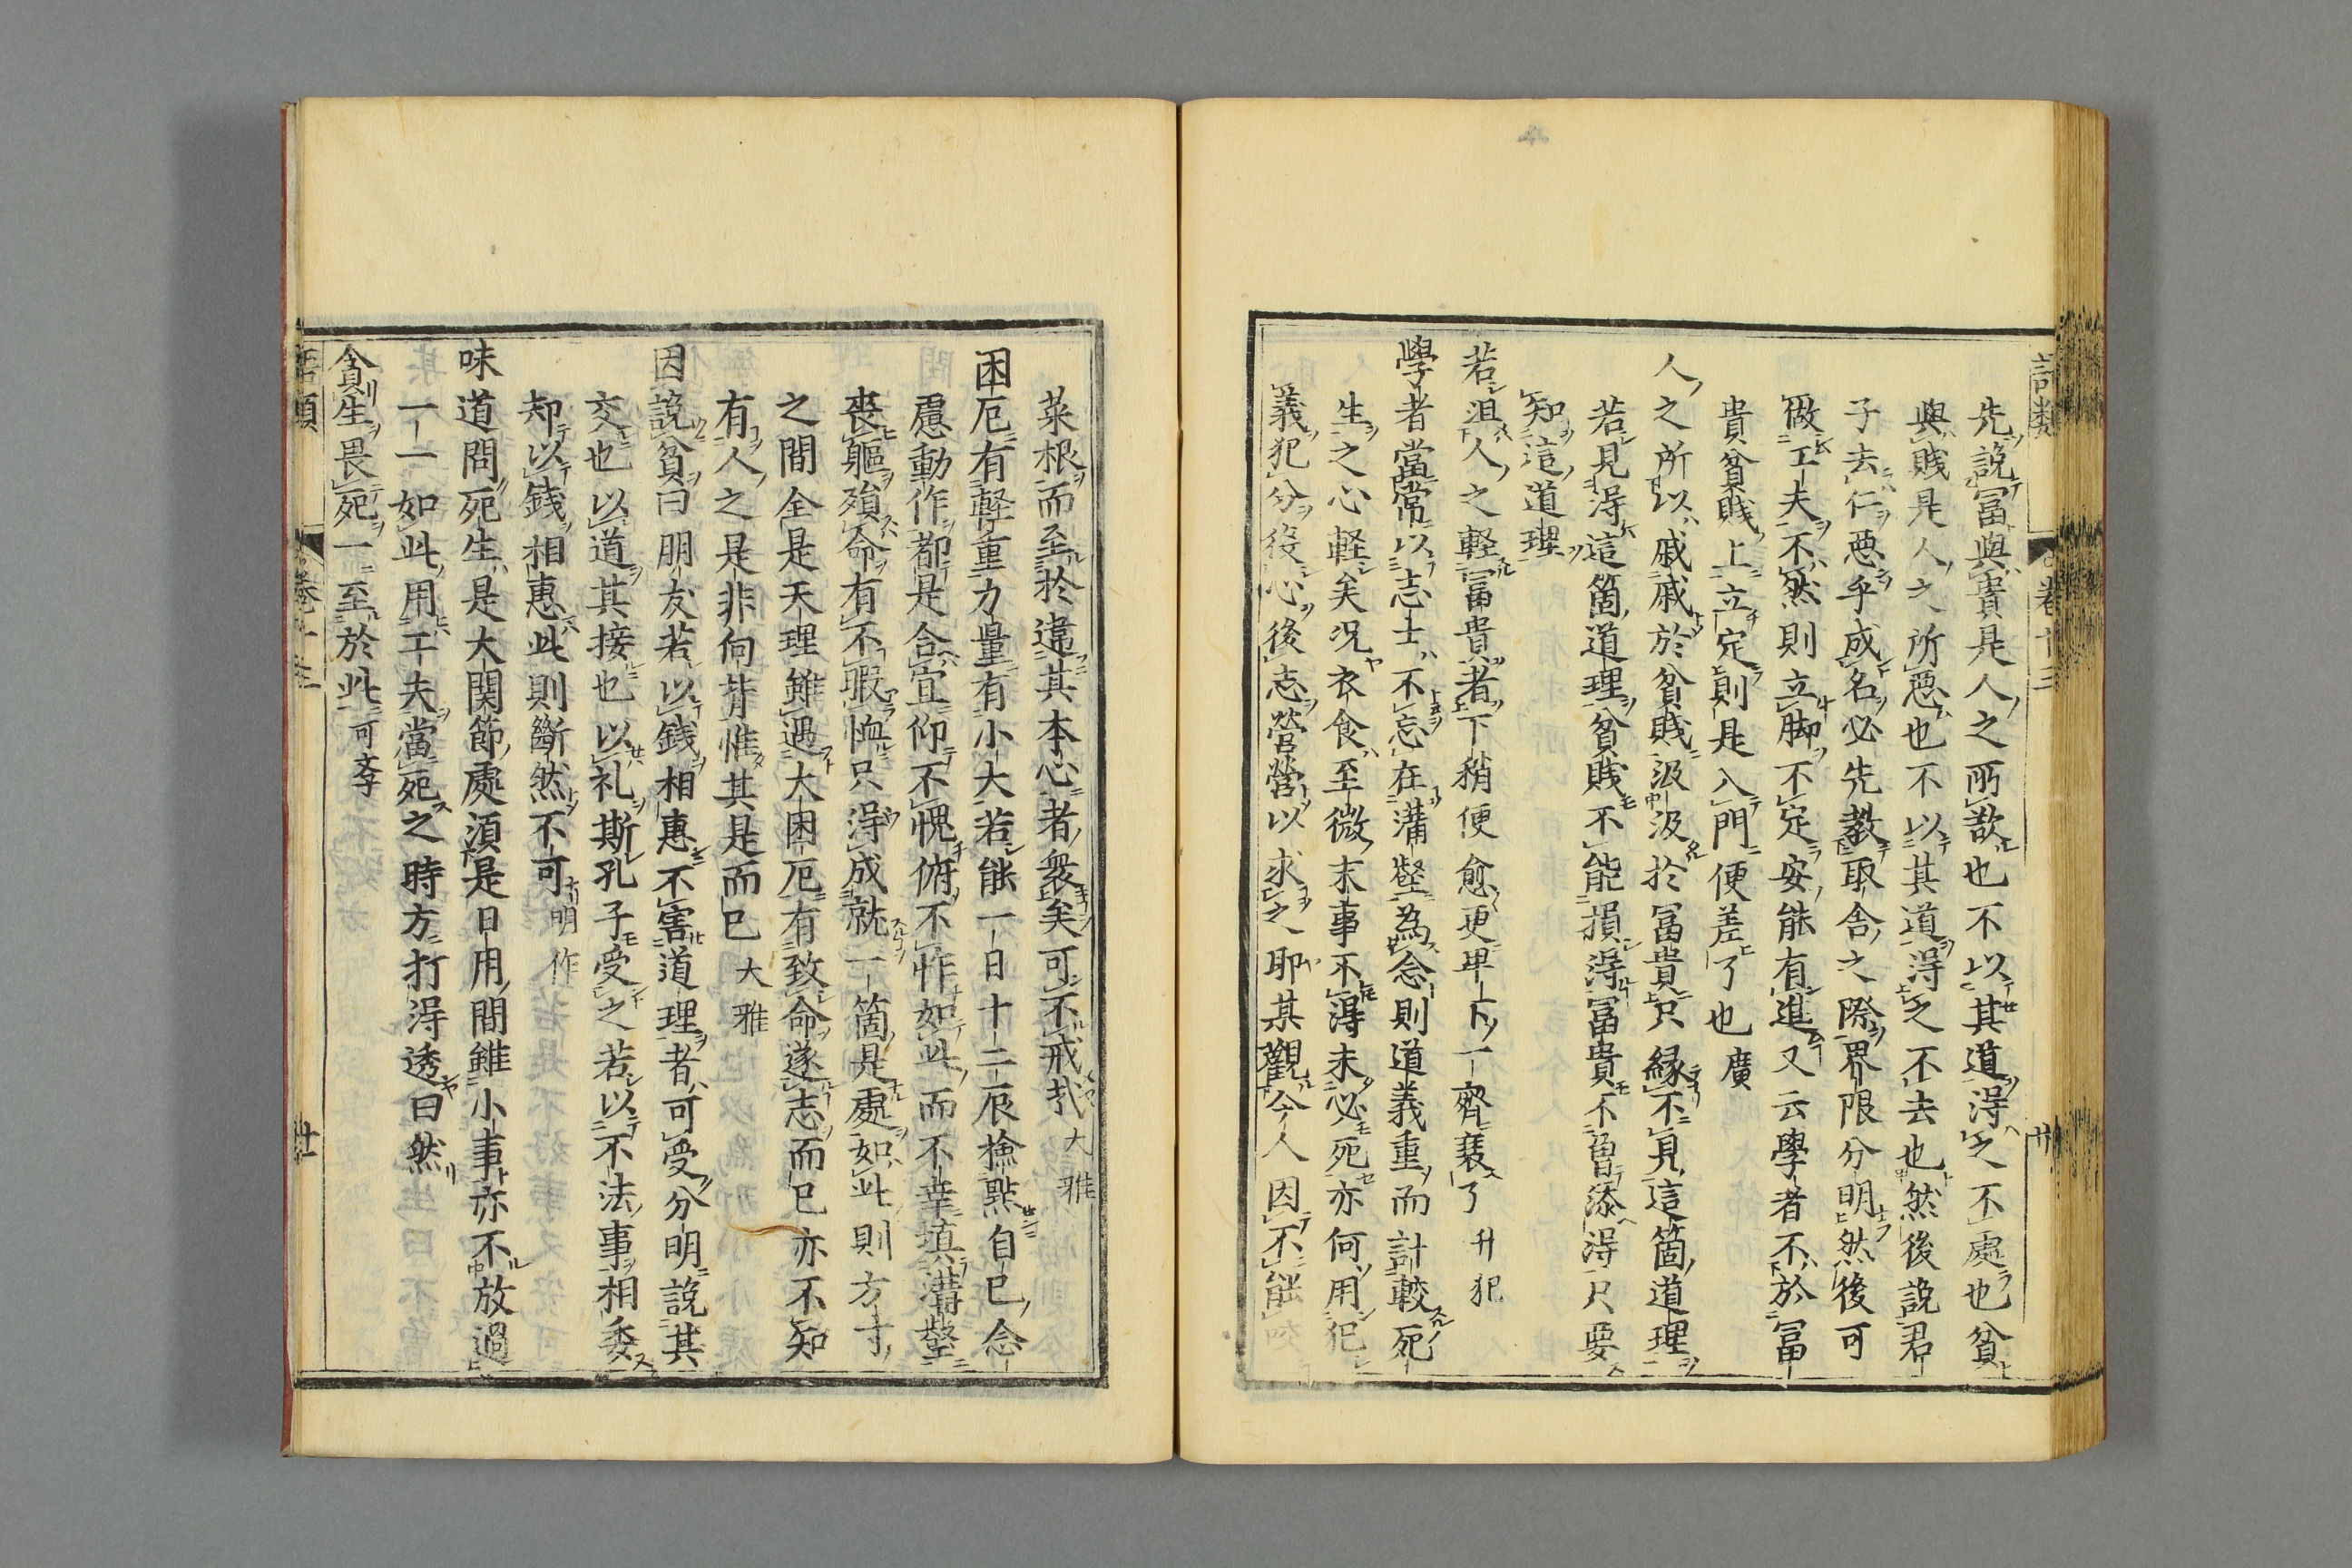 語類
卷十三
廿
先說富與貴是人之所欲也不以其道得之不處也貧
與賤是人之所惡也不以其道得之不去也然後說君
子去仁惡乎成名必先教取舍之際界限分明然後可
做工夫不然則立脚不定安能有進又云學者不於富
貴貧賤上立定則是入門便差了也 廣
人之所以戚戚於貧賤汲汲於富貴只緣不見這箇道理
若見得這箇道理貧賤不能損得富貴不曽添得只要
知這道理
若沮人之軽富貴者下稍便愈更卑下一齊衰了 升犯
學者當常以志士不忘在溝壑為念則道義重而計較死
生之心軽矣況衣食至微末事不得未必死亦何用犯
義犯分役心後志營營以求之耶某觀今人因不能咬
菜根而至於違其本心者衆矣可不戒哉 大雅
困厄有軽重力量有小大若能一日十二辰撿點自己念
慮動作都是合宜仰不愧俯不怍如此而不幸填溝壑
喪軀殞命有不暇恤只得成就一箇是處如此則方寸
之間全是天理雖遇大困厄有致命遂志而已亦不知
有人之是非向背惟其是而已 大雅
因說貧曰朋友若以錢相惠不害道理者可受分明說其
交也以道其接也以礼斯孔子受之若以不法事相委
却以錢相惠此則斷然不可 明作
味道問死生是大関節處湏是日用間雖小事亦不放過
一一如此用工夫當死之時方打得透曰然
貪生畏死一至於此 可學
語類
卷十三
廿一